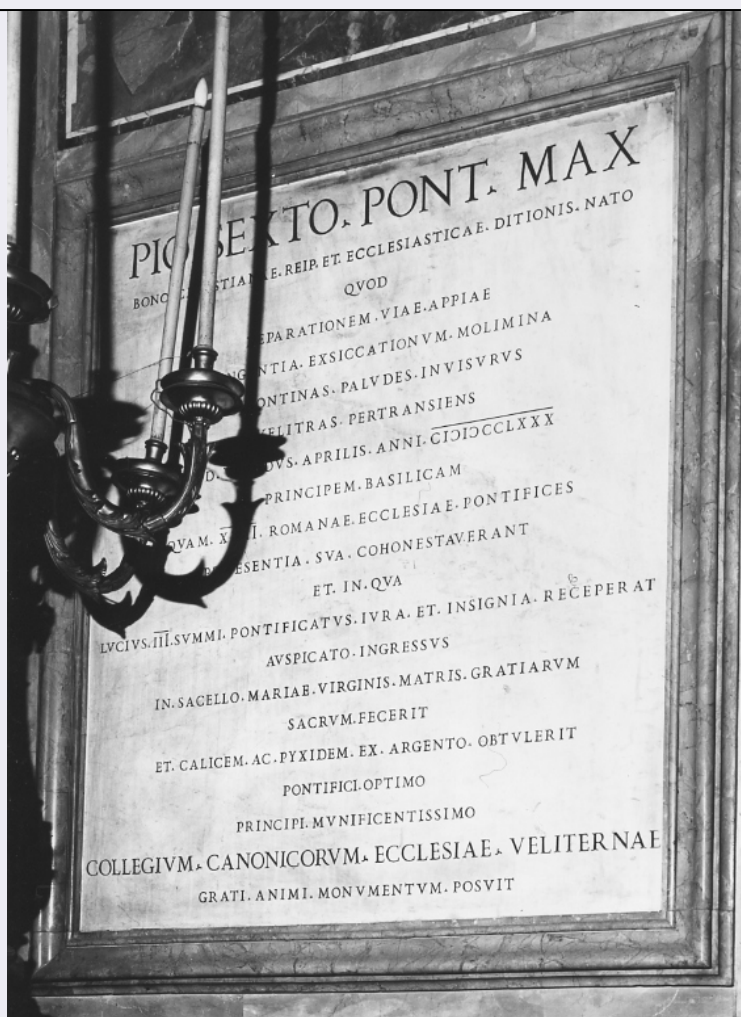 PIO. SEXTO. PONT. MAX
BONO. REIP. ET. ECCLESIASTICAE. DITIONIS. NATO
QVOD
REPARATIONEM. VIAE. APPIAE
EXSICCATIONVM. MOLIMINA
PONTINAS. PALVDES. INVISVRVS
VELITRAS. PERTRANSIENS
APRILIS. ANNI. CIƆIƆCCLXXX
PRINCIPEM. BASILICAM
QVAM. ROMANAE. ECCLESIAE. PONTIFICES
PRAESENTIA. SVA. COHONESTAVERANT
ET. IN. QVA
LVCIVS. III. SVMMI. PONTIFICATVS. IVRA. ET. INSIGNIA. RECEPERAT
AVSPICATO. INGRESSVS
IN. SACELLO. MARIAE. VIRGINIS. MATRIS. GRATIARVM
SACRVM. FECERIT
ET. CALICEM. AC. PYXIDEM. EX. ARGENTO. OBTVLERIT
PONTIFICI. OPTIMO
PRINCIPI. MVNIFICENTISSIMO
COLLEGIVM. CANONICORVM. ECCLESIAE. VELITERNAE
GRATI. ANIMI. MONVMENTVM. POSVIT